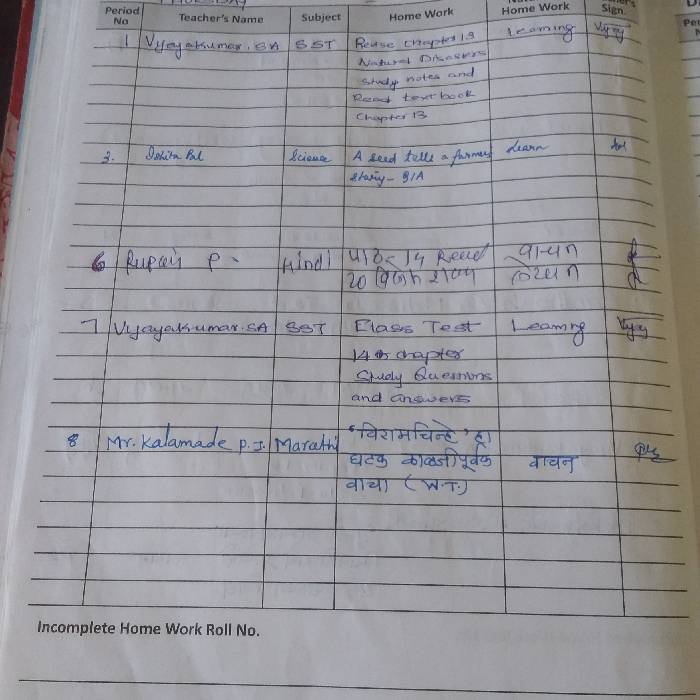 Period No Teacher's Name Subject Home Work Home Work Sign.
1 Vijayakumar.SA SST Revise chapter 13 Learning
Natural Disasters
Study notes and
Read textbook
Chapter 13
3. Ishita Pal Science A seed tells a farmer's Learn
story - Q/A
6 Rupali P. Hindi पाठ- 14 Read वाचन
20 शब्द लेखन
7 Vijayakumar.SA SST Class Test Learning
14th chapter
Study Questions
and answers
8 Mr. Kalamade P.J. Marathi 'विरामचिन्हे' हा
घटक काळजीपूर्वक वाचन
वाचा (W.T.)
Incomplete Home Work Roll No.